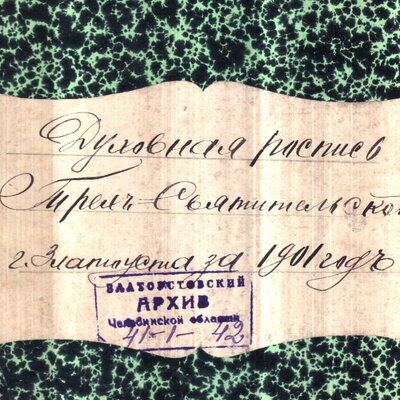 Духовная роспись
Трехъ-Святительской
г. Златоуста за 1901 годъ
ЗЛАТОУСТОВСКИЙ
АРХИВ
Челябинской области
41-1- 42